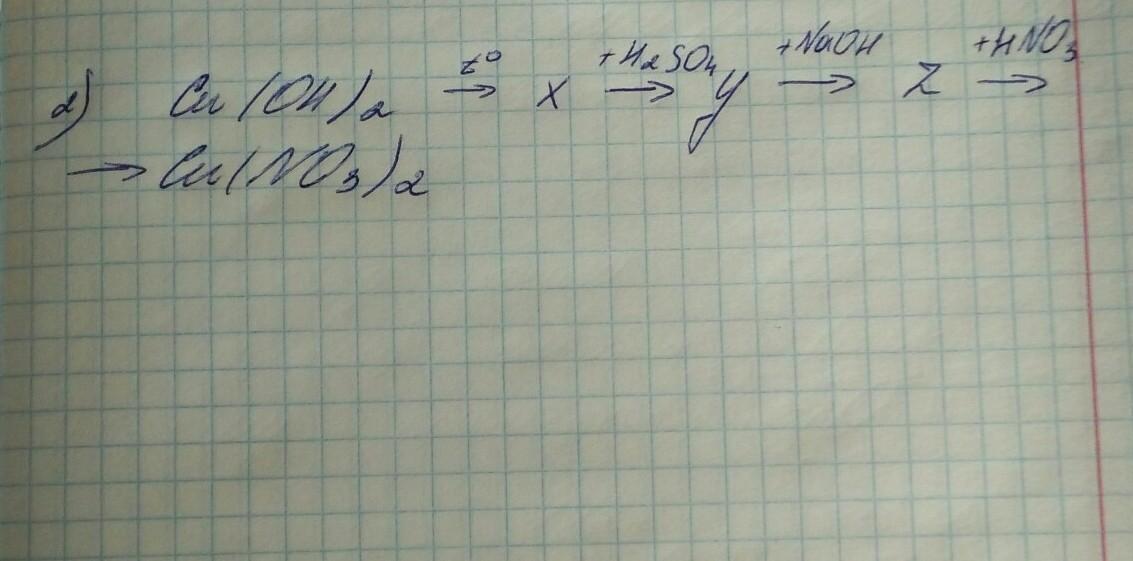 2) Cu(OH)₂ —t°→ X —+H₂SO₄→ Y —+NaOH→ Z —+HNO₃→
→ Cu(NO₃)₂